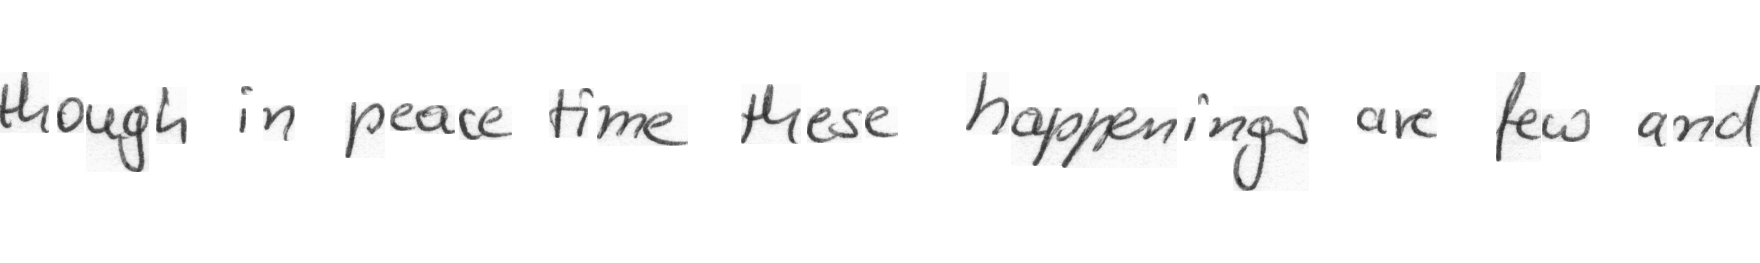 though in peace time these happenings are few and